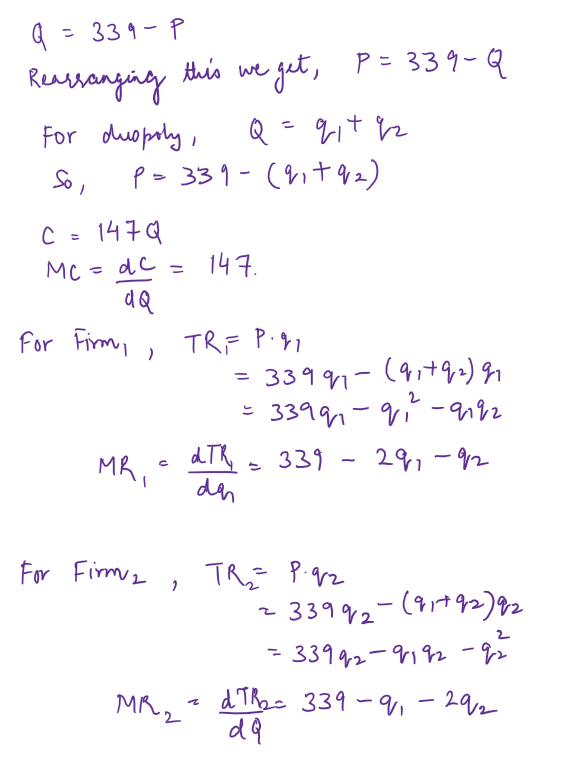 Q = 339 - P
Rearranging this we get, P = 339 - Q
For duopoly, Q = q₁ + q₂
So, P = 339 - (q₁ + q₂)
C = 147Q
MC = dC/dQ = 147.
For Firm₁, TR₁ = P·q₁
= 339q₁ - (q₁+q₂)q₁
= 339q₁ - q₁² - q₁q₂
MR₁ = dTR₁/dq₁ = 339 - 2q₁ - q₂
For Firm₂, TR₂ = P·q₂
= 339q₂ - (q₁+q₂)q₂
= 339q₂ - q₁q₂ - q₂²
MR₂ = dTR₂/dQ = 339 - q₁ - 2q₂